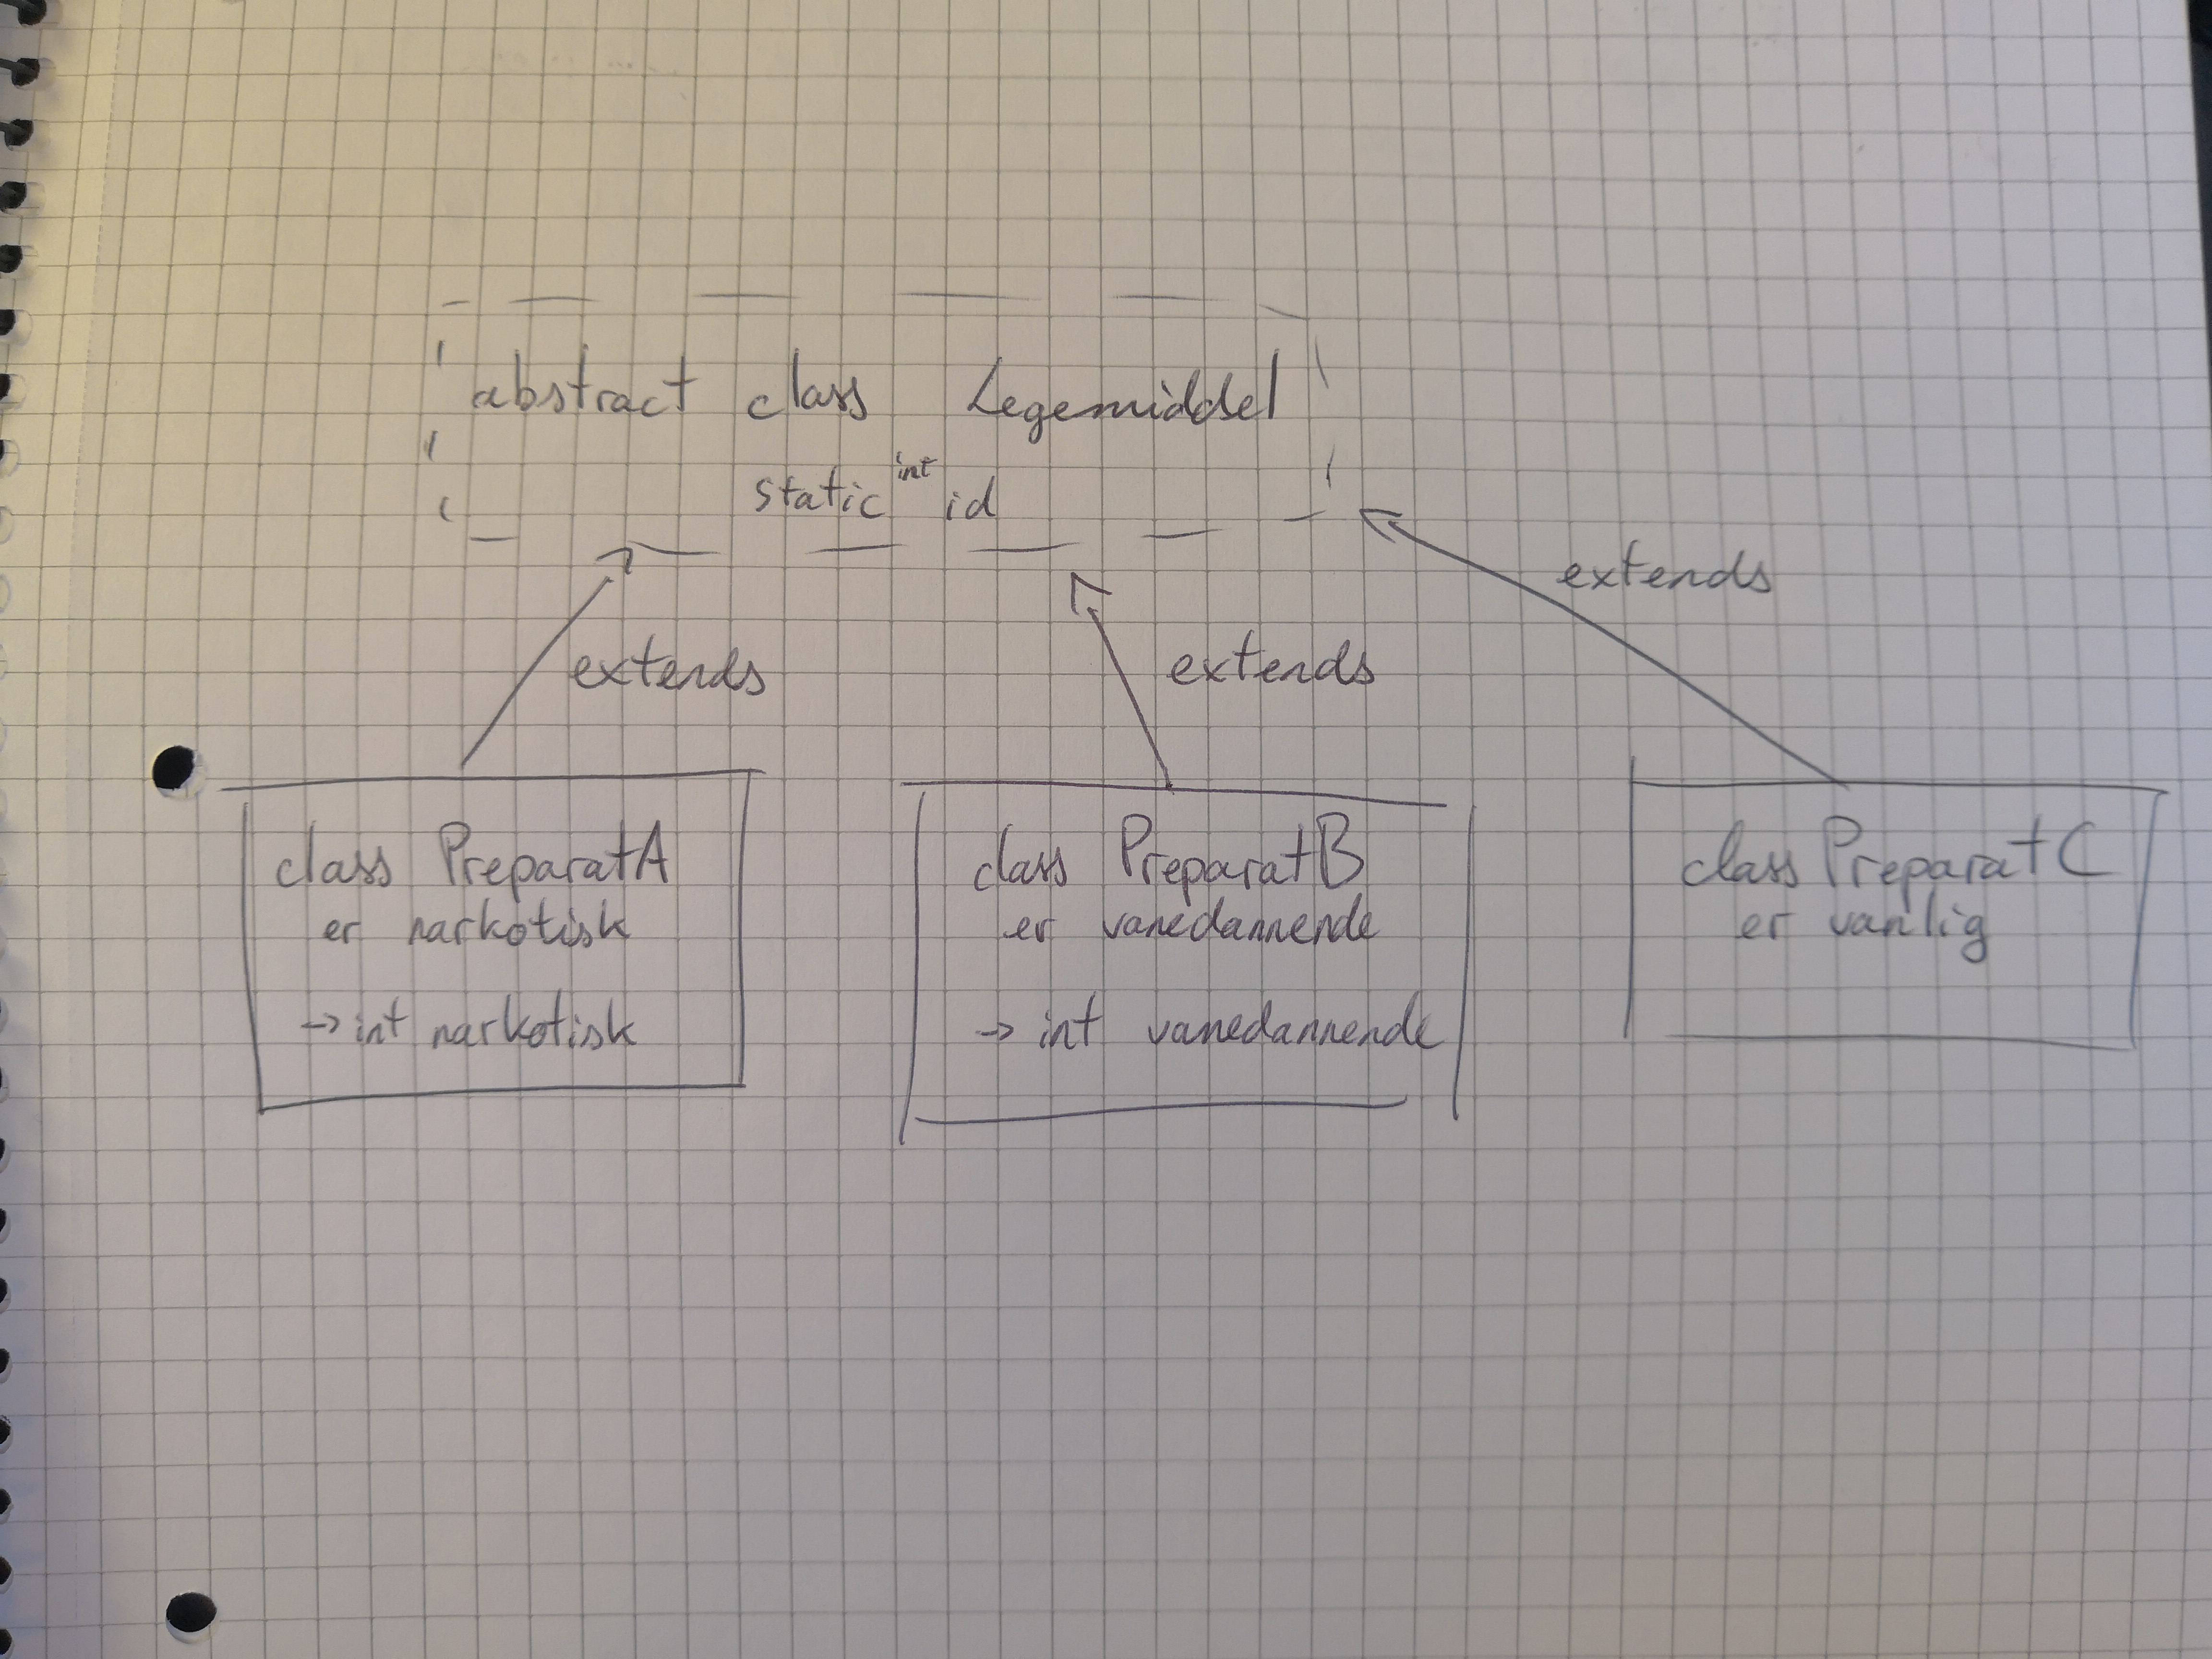 abstract class Legemiddel
static int id
extends
extends
extends
class PreparatA
er narkotisk
→ int narkotisk
class PreparatB
er vanedannende
→ int vanedannende
class PreparatC
er vanlig